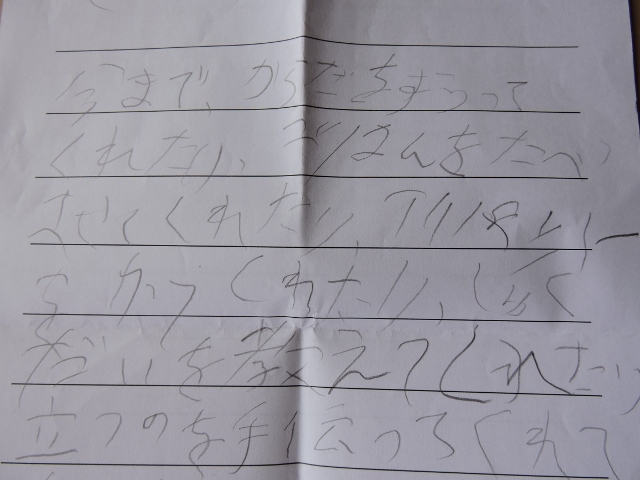 今まで、からだをあらって
くれたり、ごはんをたべ
させてくれたり、
をかってくれたり、しゅく
だいを教えてくれたり
立つのを手伝ってくれて